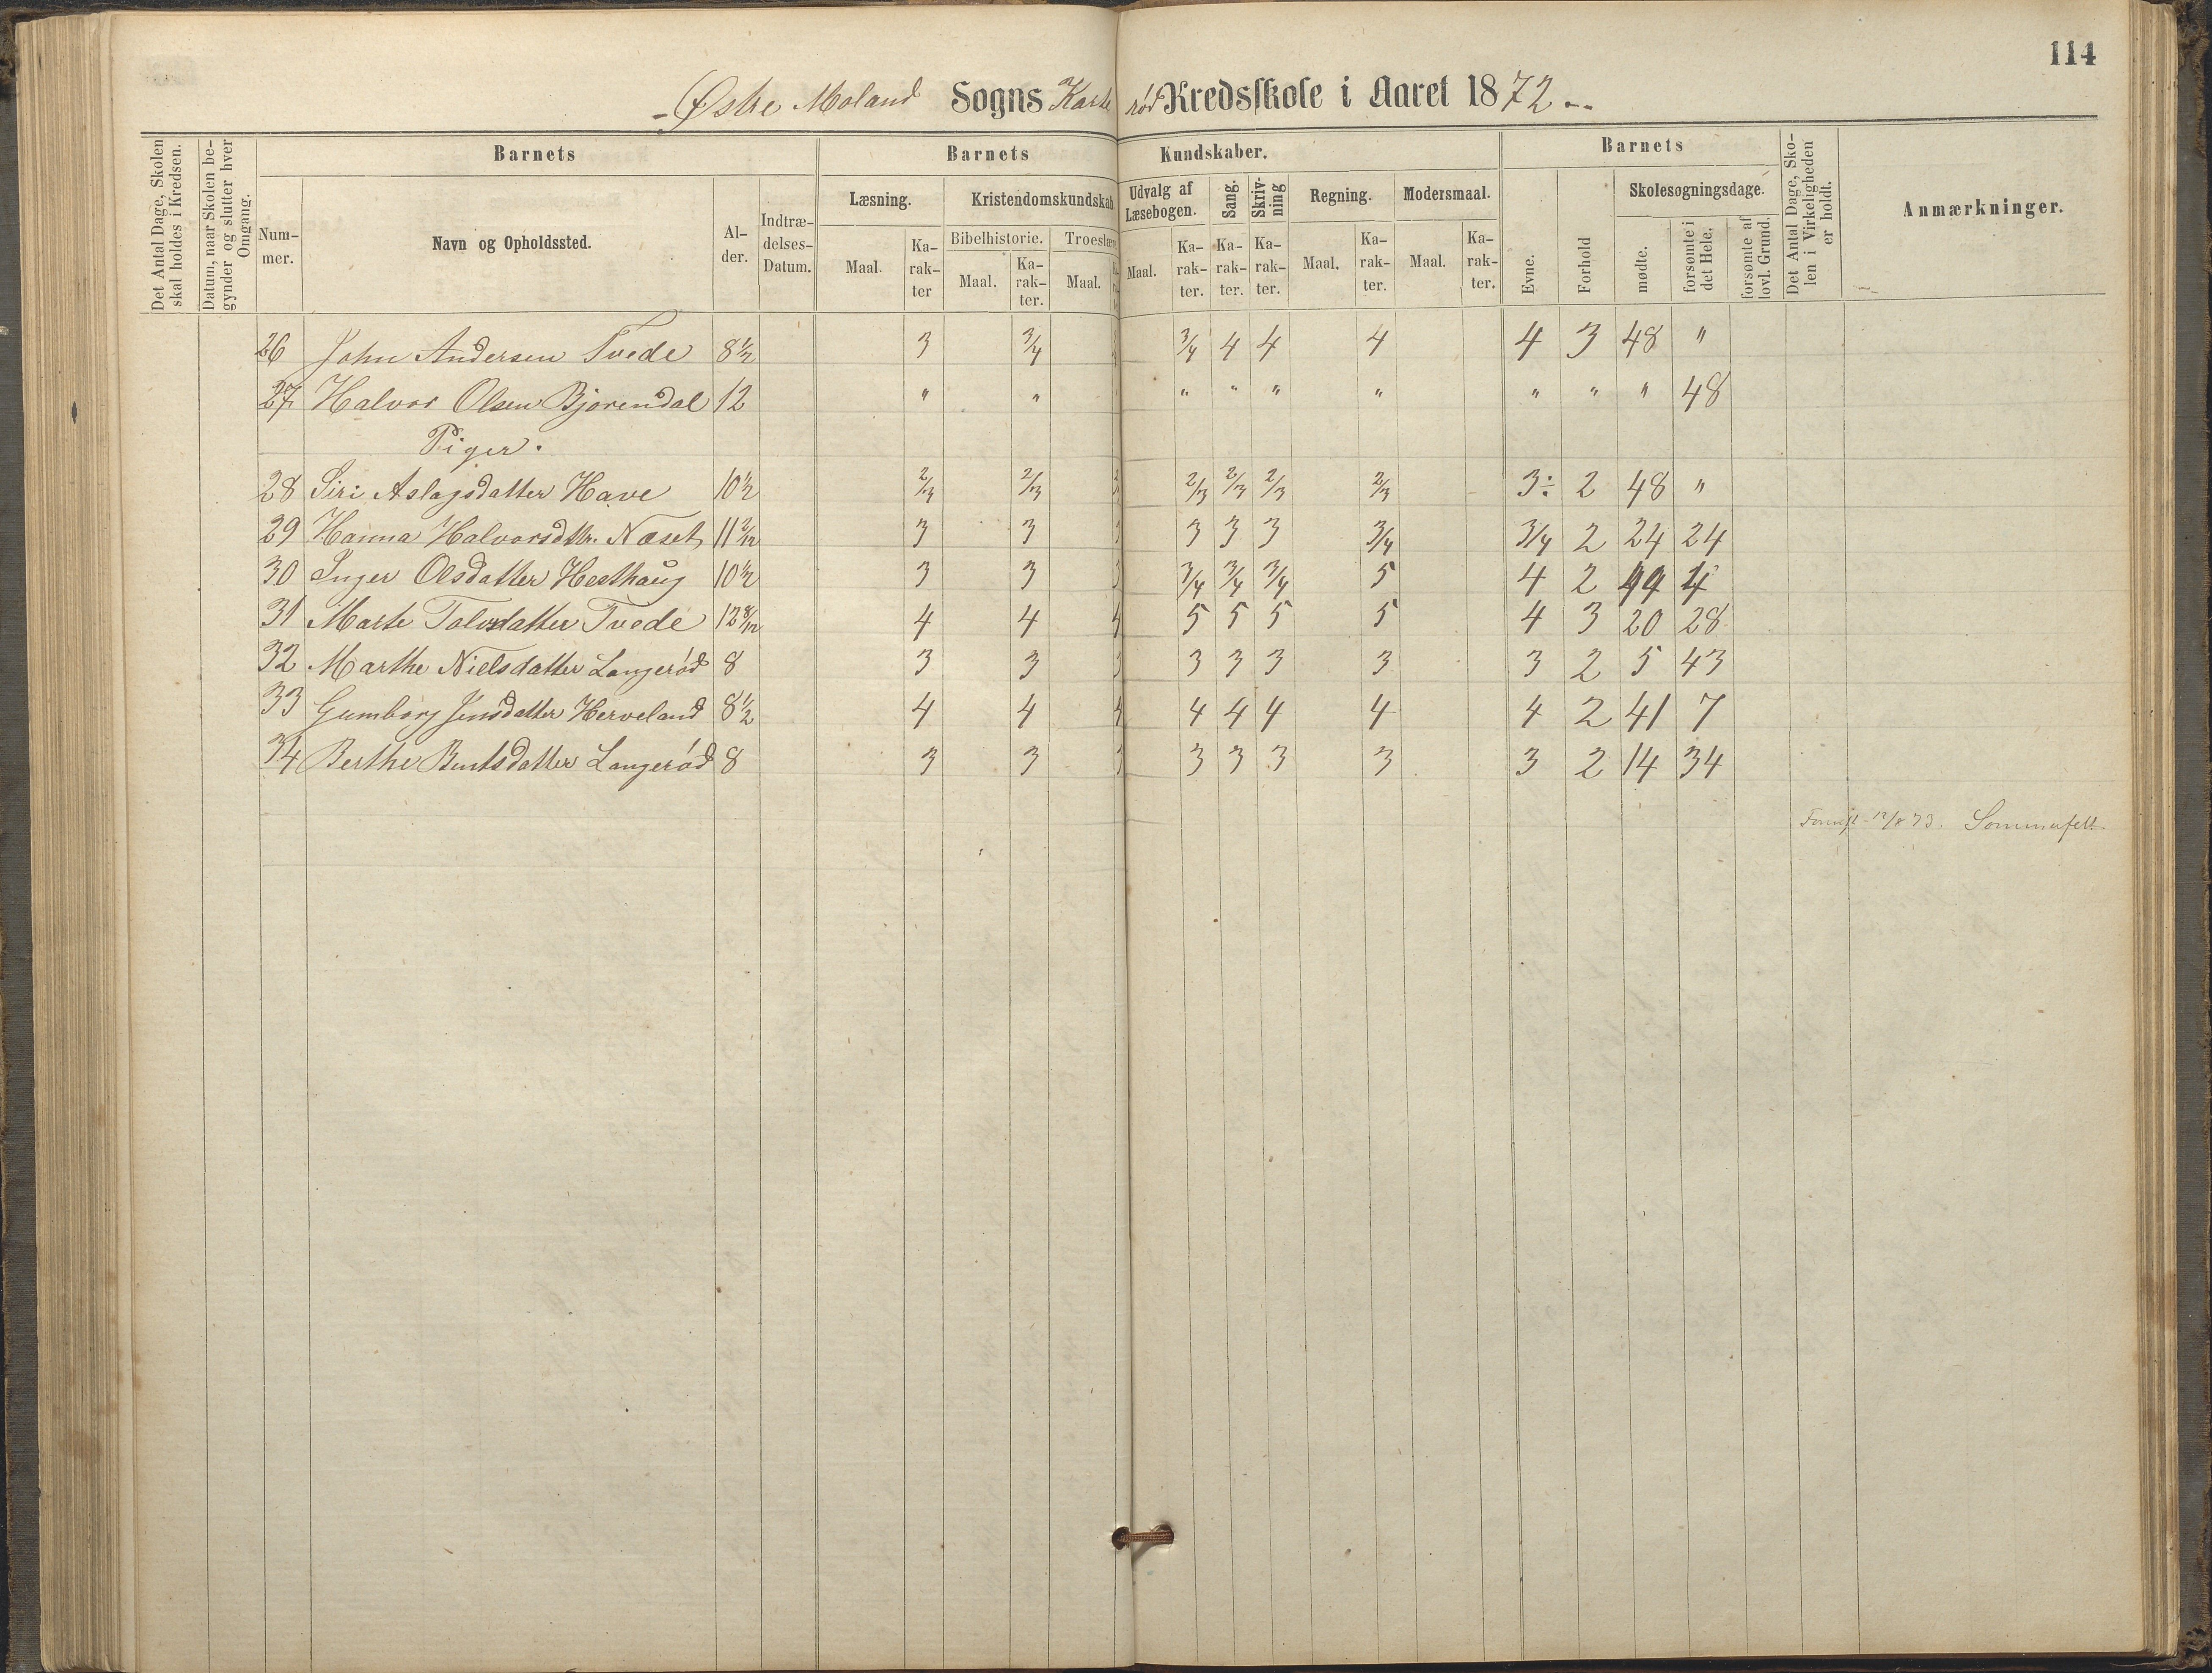 114
Østre Moland Sogns Kasterød Kredsskole i Aaret 1872
Det Antal Dage, Skolen skal holdes i Kredsen.
Datum, naar Skolen begynder og slutter hver Omgang.
Barnets
Nummer.
Navn og Opholdssted.
Alder.
Indtrædelses-Datum.
Barnets Kundskaber.
Læsning.
Maal. Karakter
Kristendomskundskab
Bibelhistorie. Troeslære
Maal. Karakter. Maal.
Udvalg af Læsebogen.
Maal. Karakter.
Sang. Karakter.
Skrivning Karakter.
Regning.
Maal. Karakter.
Modersmaal.
Maal. Karakter.
Barnets
Evne.
Forhold
Skolesøgningsdage.
mødte.
forsømte i det Hele.
forsømte af lovl. Grund.
Det Antal Dage, Skolen i Virkeligheden er holdt.
Anmærkninger.
26 John Andersen Tvede 8 1/2 3 3/4 3/4 4 4 4 4 3 48 "
27 Halvor Olsen Bjorendal 12 " " " " " " " " " 48
Piger.
28 Siri Aslagsdatter Have 10 1/2 2/3 2/3 2/3 2/3 2/3 2/3 3÷ 2 48 "
29 Hanna Halvorsdtr. Næset 11 2/12 3 3 3 3 3 3 3/4 3/4 2 24 24
30 Inger Olsdatter Hesthaug 10 1/2 3 3 3 3/4 3/4 3/4 5 4 2 44 4
31 Marte Talvsdatter Tvede 12 8/12 4 4 4 5 5 5 5 4 3 20 28
32 Marthe Nielsdatter Langerød 8 3 3 3 3 3 3 3 3 2 5 43
33 Gumborg Jensdatter Herveland 8 1/2 4 4 4 4 4 4 4 4 2 41 7
34 Berthe Bentsdatter Langerød 8 3 3 3 3 3 3 3 3 2 14 34
12/8 73. Sommerfelt